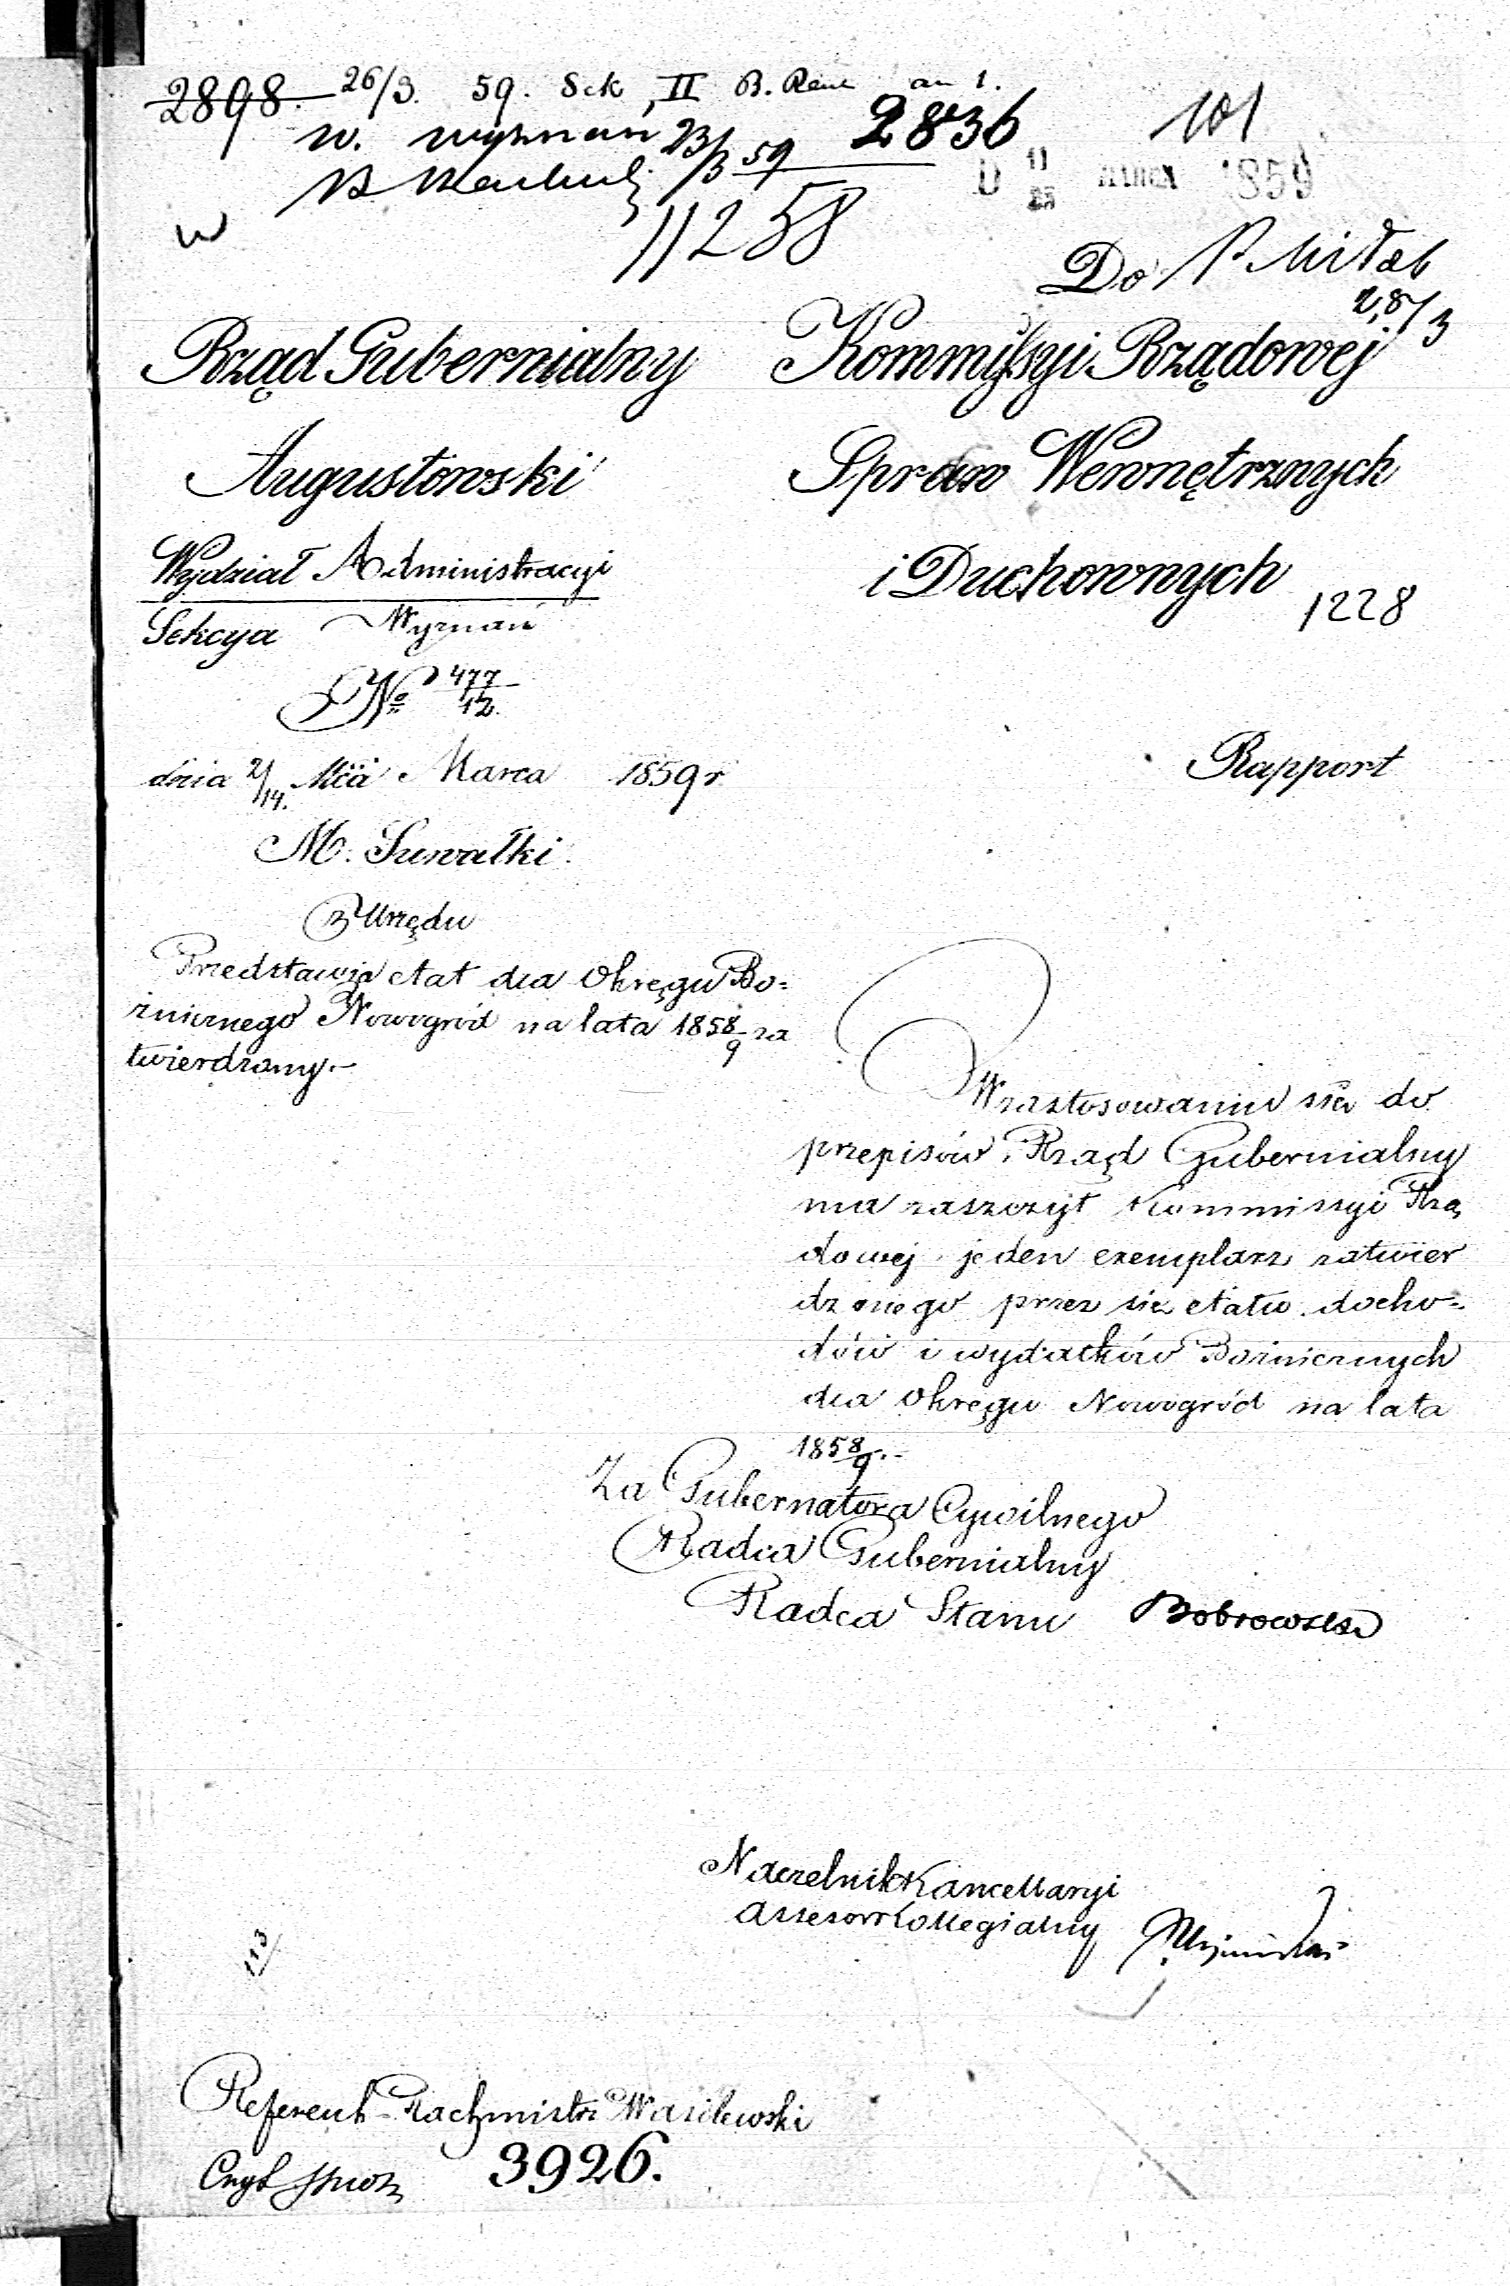 2898. 26/3. 59. Sek II B. an 1.
w. wyznań 23/3 59 2836 101
D 11/23 MARCA 1859
w
11258
Do
28/3
Rząd Gubernialny
Augustowski
Wydział Administracyi
Sekcya Wyznań
No 477/12.
dnia 2/14. Mca Marca 1859 r
M. Suwałki.
z Urzędu
Przedstawia etat dla Okręgu Bo=
żnicznego Nowogród na lata 1858/9 za
twierdzony.-
Kommissyi Rządowej
Spraw Wewnętrznych
i Duchownych
1228
Rapport
W zastosowaniu się do
przepisów, Rząd Gubernialny
ma zaszczyt Kommissyi Rzą
dowej jeden exemplarz zatwier
dzonego przez się etatu docho=
dów i wydatków Bożnicznych
dla Okręgu Nowogród na lata
1858/9.-
Za Gubernatora Cywilnego
Radca Gubernialny
Radca Stanu Bobrowski
Naczelnik Kancellaryi
Assessor Kollegialny
113
Referent Rachmistrz Wasilewski
3926.